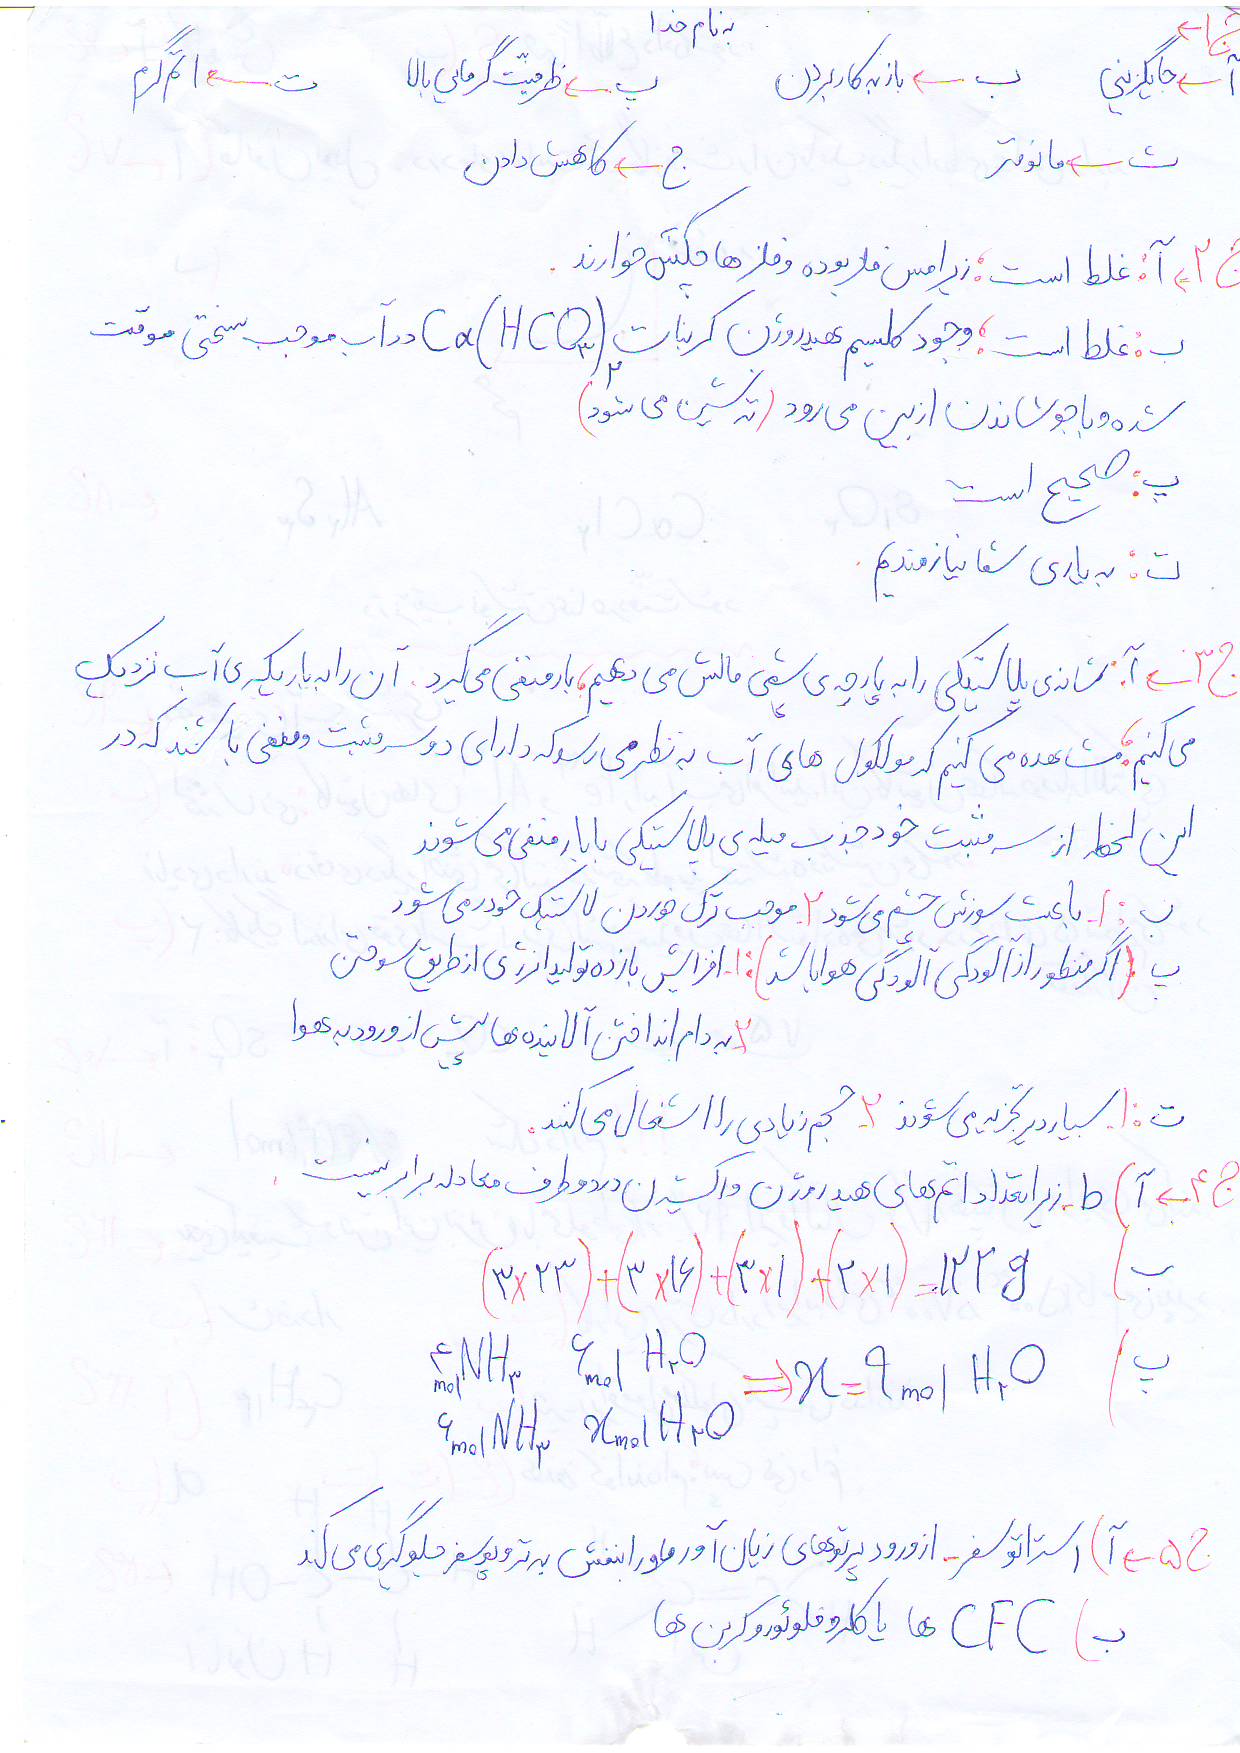 به نام خدا
ج۱← آ← جایگزینی ب← بازبه کاربردن پ← ظرفیّت گرمایی بالا ت← اتم گرم
ث← مانومتر ج← کاهش دادن
ج۲← آ: غلط است؛ زیرا مس فلز بوده و فلزها چکّش خوارند.
ب: غلط است؛ وجود کلسیم هیدروژن کربنات Ca(HCO۳)۲ در آب موجب سختی موقت
شده و با جوشاندن از بین می رود (ته نشین می شود)
پ: صحیح است
ت: به یاری شما نیازمندیم.
ج۳← آ: شانه ی پلاستیکی را به پارچه ی پشمی مالش می دهیم، بار منفی می گیرد. آن را به باریکه ی آب نزدیک
می کنیم؛ مشاهده می کنیم که مولکول های آب به نظر می رسد که دارای دو سر مثبت و منفی باشند که در
این لحظه از سر مثبت خود جذب میله ی پلاستیکی با بار منفی می شوند
ب: ۱- باعث سوزش چشم می شود ۲- موجب ترک خوردن لاستیک خودرو می شود
پ (اگر منظور از آلودگی آلودگی هوا باشد): ۱- افزایش بازده تولید انرژی از طریق سوختن
۲ به دام انداختن آلاینده ها پیش از ورود به هوا
ت: ۱- بسیار دیر تجزیه می شوند ۲- حجم زیادی را اشغال می کنند.
ج۴← آ) ط- زیرا تعداد اتم های هیدروژن و اکسیژن در دو طرف معادله برابر نیست.
ب) (۳×۲۳)+(۳×۱۶)+(۳×۱)+(۲×۱)=۱۲۲ g
پ) ۴mol NH۳ ۶mol H۲O ⇒ x=۹mol H۲O
۶mol NH۳ xmol H۲O
ج۵← آ) استراتوسفر- از ورود پرتوهای زیان آور ماورابنفش به تروپوسفر جلوگیری می کند
ب) CFC ها یا کلروفلوئوروکربن ها